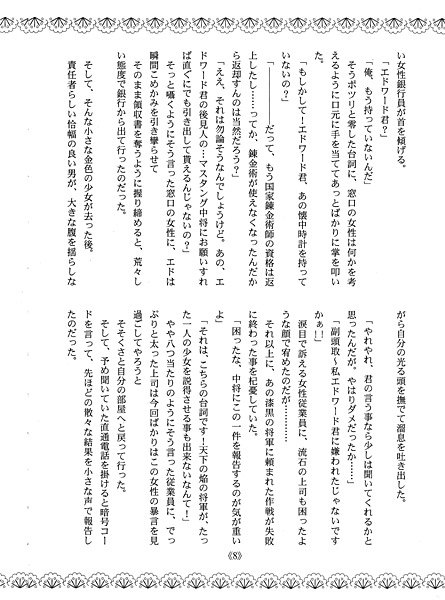 い女性銀行員が首を傾げる。
「エドワード君？」
「俺、もう持っていないんだ」
そうポツリと零した台詞に、窓口の女性は何かを考
えるように口元に手を当ててあっとばかりに掌を叩い
た。
「もしかして！エドワード君、あの懐中時計を持って
いないの？」
「――――だって、もう国家錬金術師の資格は返
上したし……ってか、錬金術が使えなくなったんだか
ら返却すんのは当然だろう？」
「ええ、それは勿論そうなんでしょうけど。あの、エ
ドワード君の後見人の…マスタング中将にお願いすれ
ば直ぐにでも引き出して貰えるんじゃないの？」
そっと囁くようにそう言った窓口の女性に、エドは
瞬間こめかみを引き攣らせて
そのまま領収書を奪うように握り締めると、荒々し
い態度で銀行から出て行ったのだった。
そして、そんな小さな金色の少女が去った後。
責任者らしい恰幅の良い男が、大きな腹を揺らしな
がら自分の光る頭を撫でて溜息を吐き出した。
「やれやれ、君の言う事なら少しは聞いてくれるかと
思ったんだが。やはりダメだったか……」
「副頭取～私エドワード君に嫌われたじゃないです
かぁ！」
涙目で訴える女性従業員に、流石の上司も困ったよ
うな顔で宥めたのだが…………
それ以上に、あの漆黒の将軍に頼まれた作戦が失敗
に終わった事を杞憂していた。
「困ったな、中将にこの一件を報告するのが気が重い
よ」
「それは、こちらの台詞です！天下の焔の将軍が、たっ
た一人の少女を説得させる事も出来ないなんて！」
やや八つ当たりのようにそう言った従業員に、でっ
ぷりと太った上司は今回ばかりはこの女性の暴言を見
過ごしてやろうと
そそくさと自分の部屋へと戻って行った。
そして、予め聞いていた直通電話を掛けると暗号コー
ドを言って、先ほどの散々な結果を小さな声で報告し
たのだった。
《8》